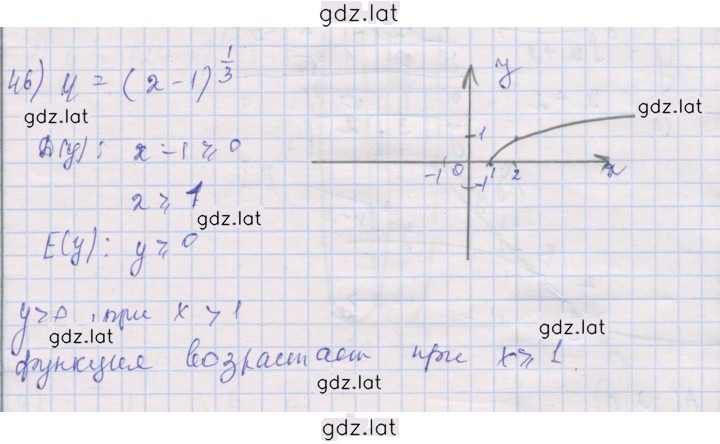 gdz.lat
46) y = (x-1)^{1/3}
gdz.lat
D(y): x-1 ⩾ 0
x ⩾ 1
gdz.lat
E(y): y ⩾ 0
y
gdz.lat
1
-1 0 1 2 x
-1
y>0, при x > 1
gdz.lat
gdz.lat
функция возрастает при x ⩾ 1.
gdz.lat
gdz.lat